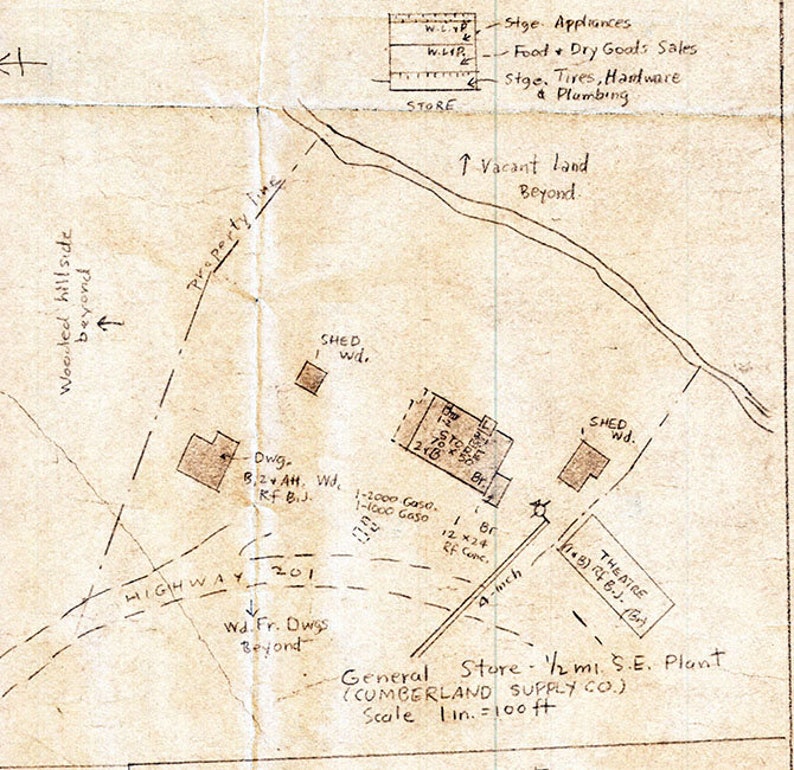 W.L.&P.
W.L.&P.
STORE
Stge. Appliances
Food & Dry Goods Sales
Stge. Tires, Hardware
& Plumbing
↑ Vacant Land
Beyond
Property line
Wooded hillside
beyond
SHED
Wd.
SHED
Wd.
Dwg.
B, 2 & Att. Wd.
Rf B.J.
1-2
STO
70 x
2 & B
Br.
1-2000 Gaso.
1-1000 Gaso
1 Br
12 x 24
Rf Conc.
4-inch
THEATRE
(1 & B) Rf B.J.
(Br)
HIGHWAY 201
Wd. Fr. Dwgs
Beyond
General Store - 1/2 mi. S.E. Plant
(CUMBERLAND SUPPLY CO.)
Scale 1 in. = 100 ft